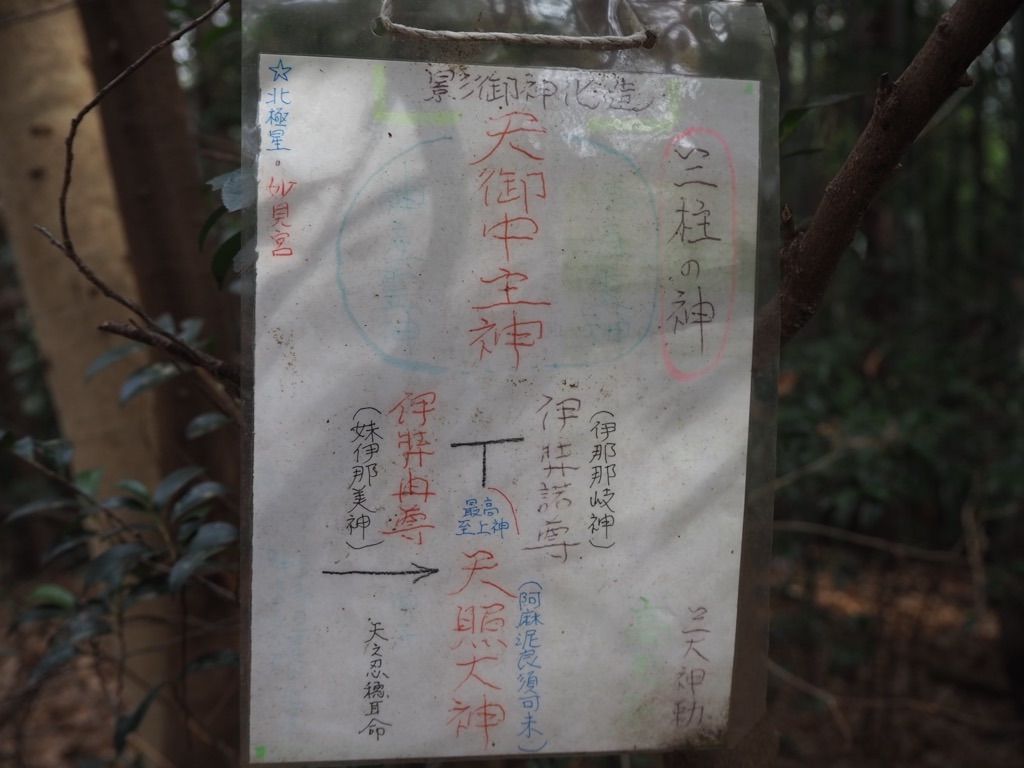 影御神化造
三柱の神
天御中主神
☆北極星・妙見宮
(伊那那岐神)
伊弉諾尊
伊弉冉尊
(妹伊那美神)
最高
至上神
天照大神
(阿麻泥良須可未)
天之忍穂耳命
三大神勅